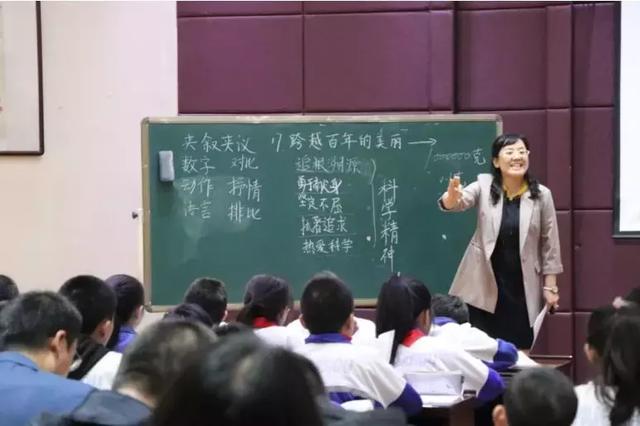 夹叙夹议
数字 对比
动作 抒情
语言 排比
17 跨越百年的美丽
追根溯源
勇于献身
坚定不屈
执着追求
热爱科学
科学精神
1000000克